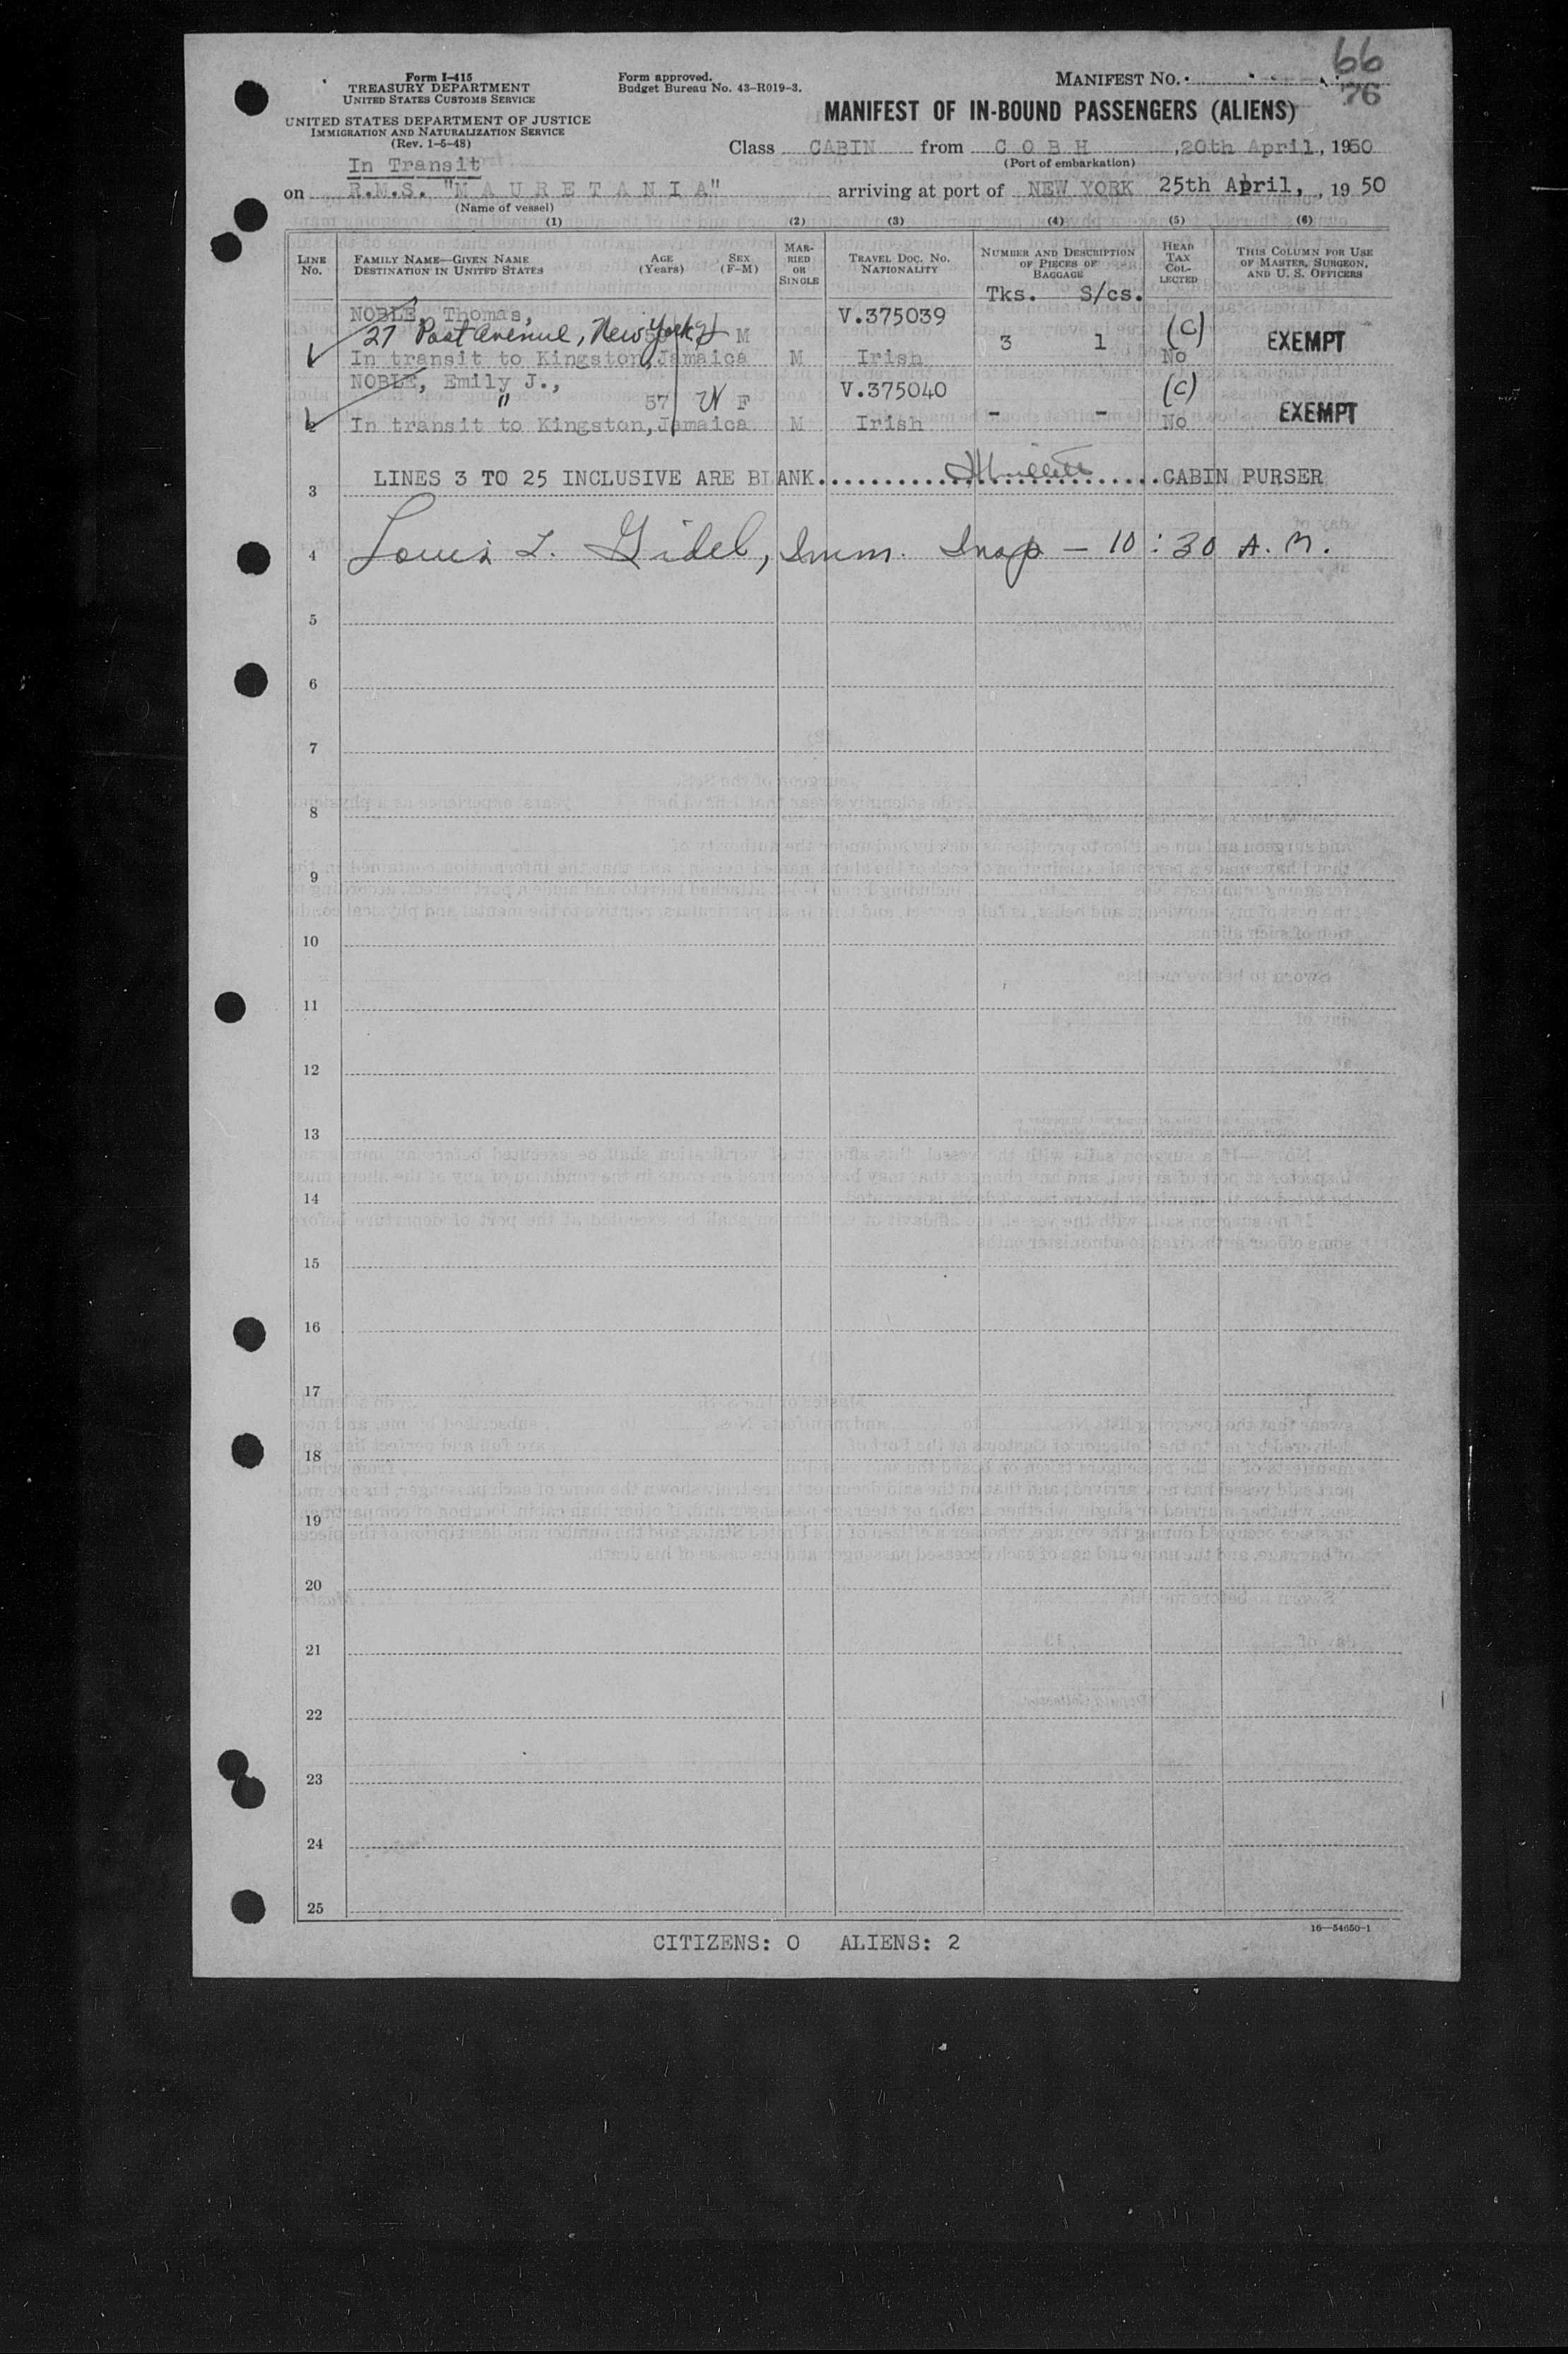 66
76
Form I-415
TREASURY DEPARTMENT
UNITED STATES CUSTOMS SERVICE
UNITED STATES DEPARTMENT OF JUSTICE
IMMIGRATION AND NATURALIZATION SERVICE
(Rev. 1-5-48)
Form approved.
Budget Bureau No. 43-R019-3.
MANIFEST NO.
MANIFEST OF IN-BOUND PASSENGERS (ALIENS)
Class CABIN from C O B H, 20th April, 1950
(Port of embarkation)
In Transit
on R.M.S. "M A U R E T A N I A" arriving at port of NEW YORK 25th April, , 19 50
(Name of vessel)
(1) (2) (3) (4) (5) (6)
LINE No. FAMILY NAME—GIVEN NAME DESTINATION IN UNITED STATES AGE (Years) SEX (F-M) MARRIED OR SINGLE TRAVEL DOC. NO. NATIONALITY NUMBER AND DESCRIPTION OF PIECES OF BAGGAGE HEAD TAX COLLECTED THIS COLUMN FOR USE OF MASTER, SURGEON, AND U. S. OFFICERS
Tks. S/cs.
NOBLE, Thomas, V.375039
27 Post Avenue, New York M 3 1 (C) EXEMPT
In transit to Kingston, Jamaica M Irish No
NOBLE, Emily J., V.375040 (C)
" 57 W F - - EXEMPT
2 In transit to Kingston, Jamaica M Irish No
3 LINES 3 TO 25 INCLUSIVE ARE BLANK CABIN PURSER
4 Louis L. Gidel, Imm. Insp - 10:30 A.M.
5
6
7
8
9
10
11
12
13
14
15
16
17
18
19
20
21
22
23
24
25
16—54650-1
CITIZENS: 0 ALIENS: 2